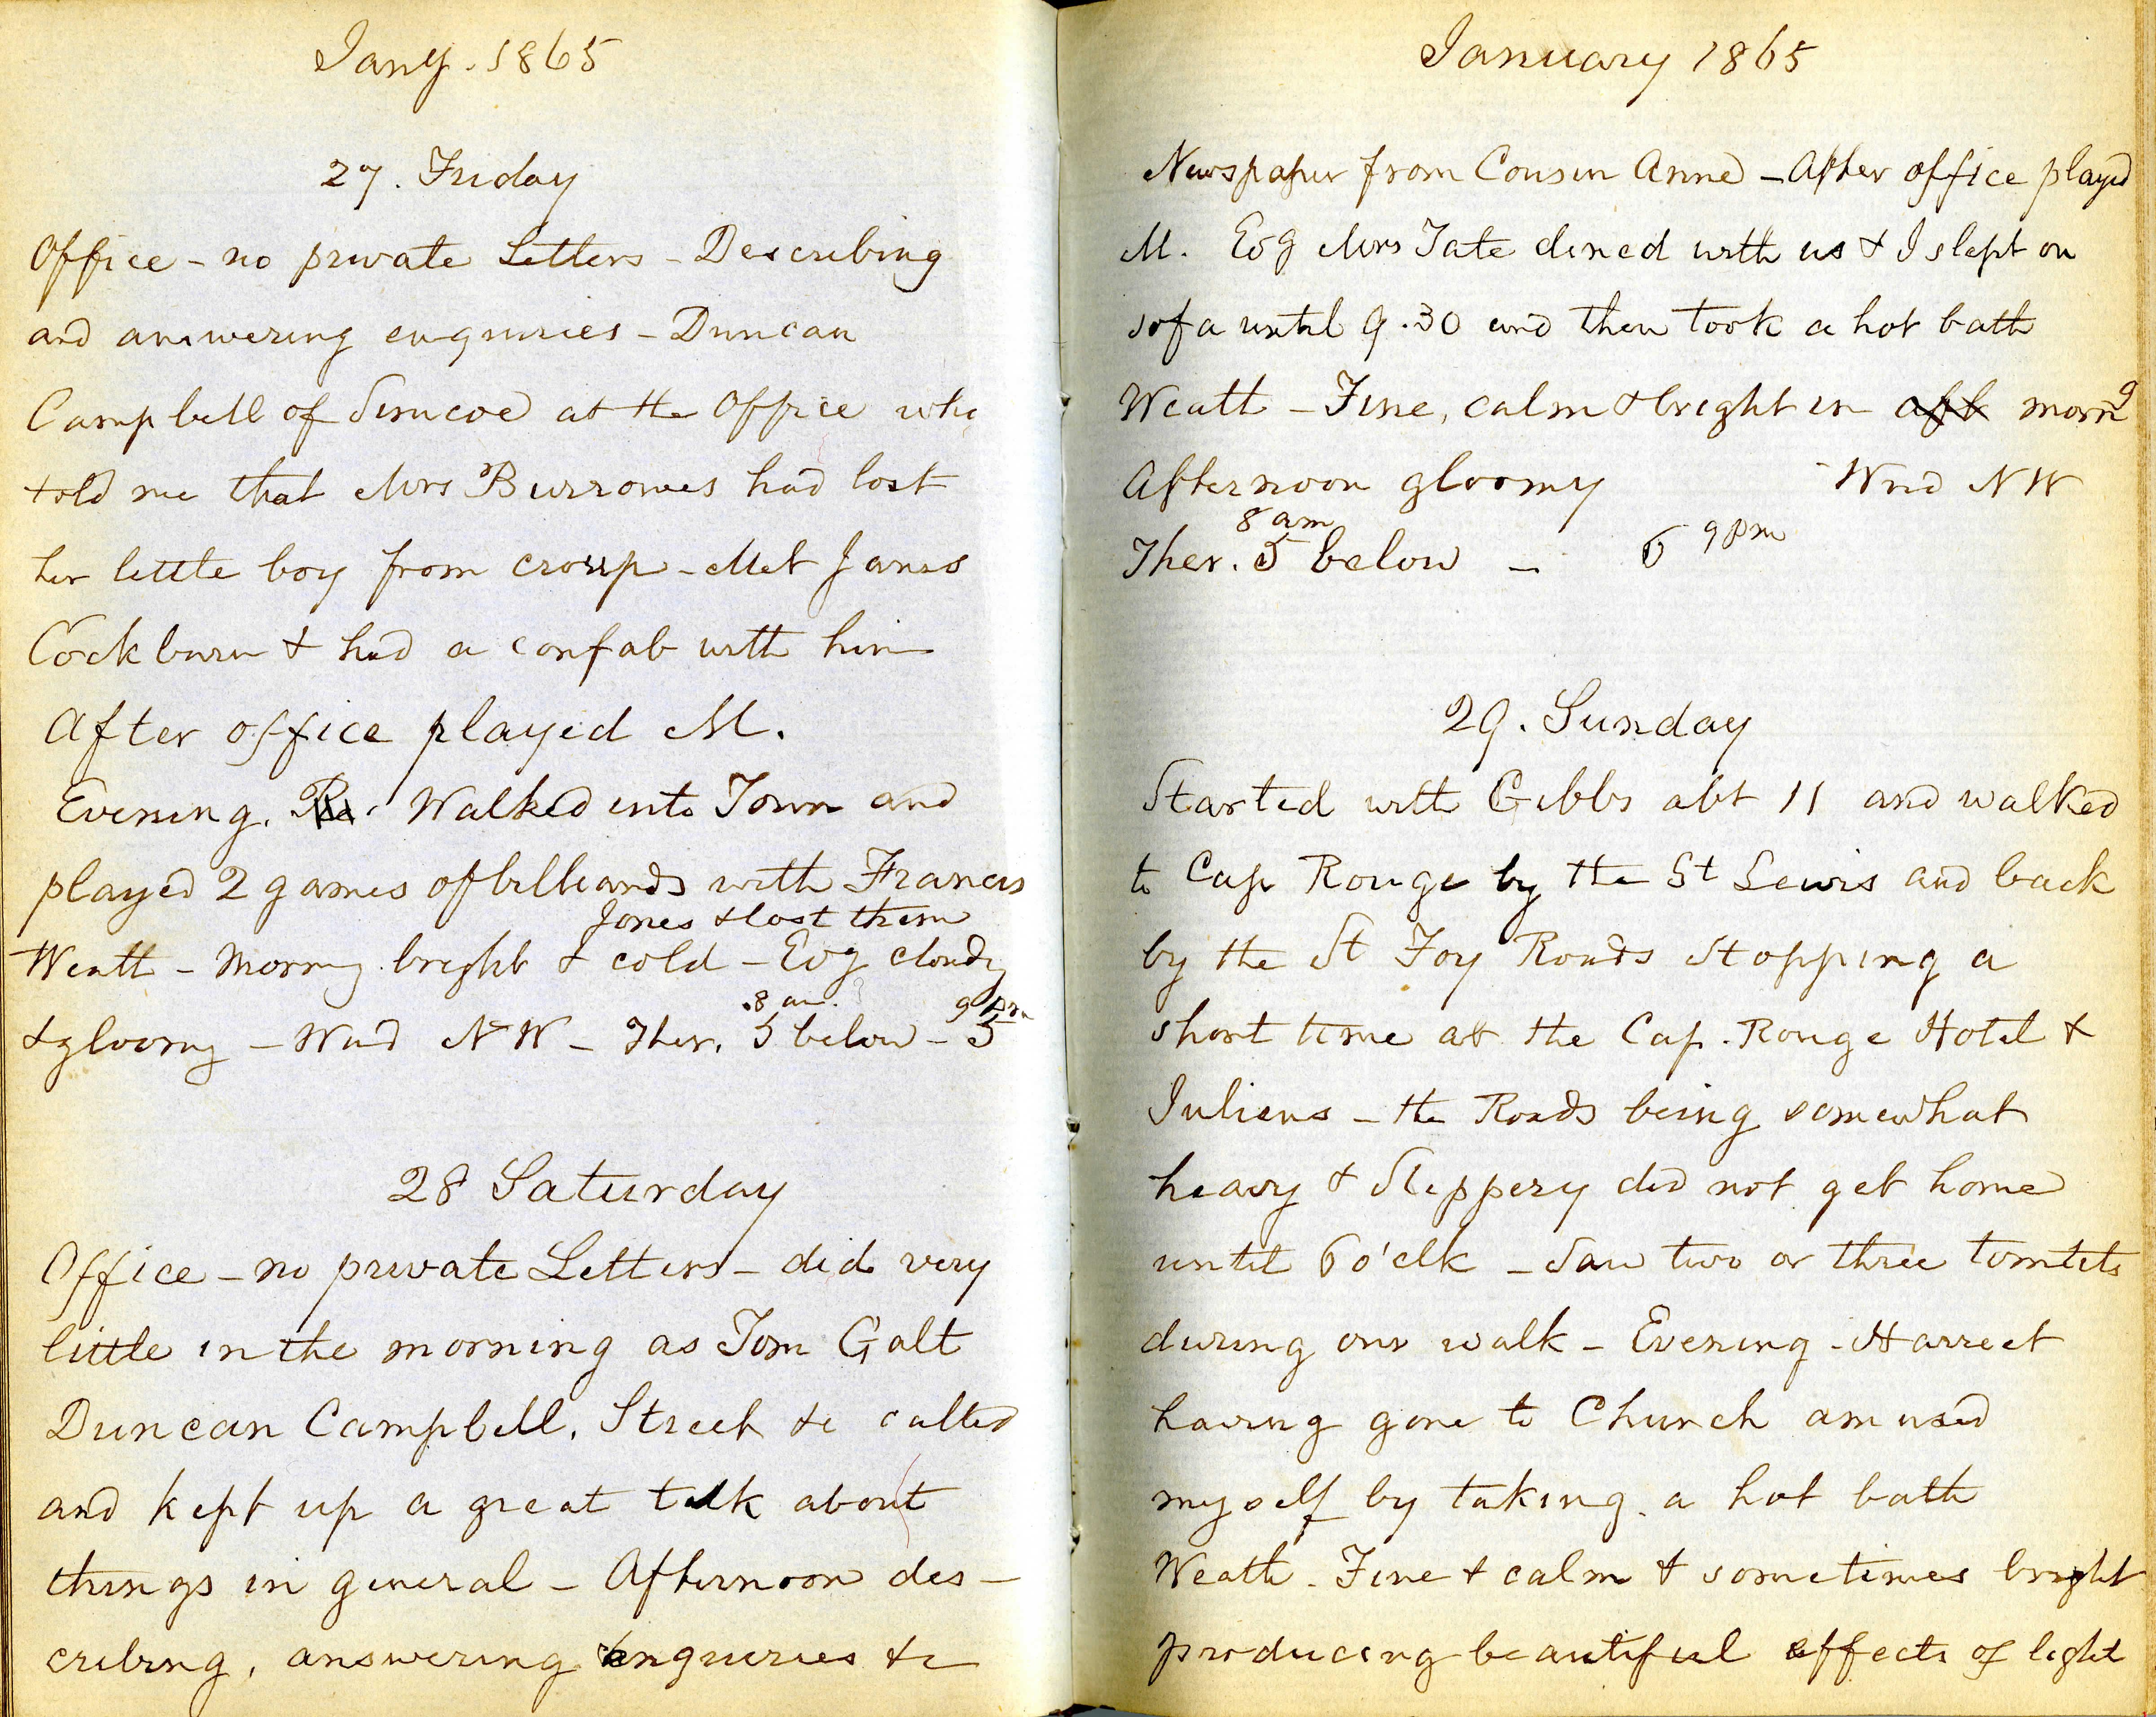 Jany. 1865
27. Friday
Office - no private Letters - Describing
and answering enquiries - Duncan
Campbell of Simcoe at the Office who
told me that Mrs Burrowes had lost
her little boy from croup - Met James
Cockburn & had a confab with him
After office played M.
Evening. Walked into Town and
played 2 games of billiards with Francis
Jones & lost them
Weath - Morning bright & cold - Evg cloudy
& gloomy - Wind N W - Ther. 8 am. 5 below - 9 pm 5
28 Saturday
Office - no private Letters - did very
little in the morning as Tom Galt
Duncan Campbell, Street &c called
and kept up a great talk about
things in general - Afternoon des-
cribing, answering enquiries &c
January 1865
Newspaper from Cousin Anne - After office played
M. Evg Mrs Tate dined with us & I slept on
sofa until 9.30 and then took a hot bath
Weath - Fine, calm & bright in aft morng
Afternoon gloomy Wind N W
Ther. 8 am 5 below - 6 9 pm
29. Sunday
Started with Gibbs abt 11 and walked
to Cap Rouge by the St Lewis and back
by the St Foy Roads Stopping a
short time at the Cap. Rouge Hotel &
Juliens - the Roads being somewhat
heavy & Slippery did not get home
until 6 o'clk - Saw two or three tomtits
during our walk - Evening - Harriet
having gone to Church amused
myself by taking a hot bath
Weath - Fine & calm & sometimes bright
producing beautiful effects of light